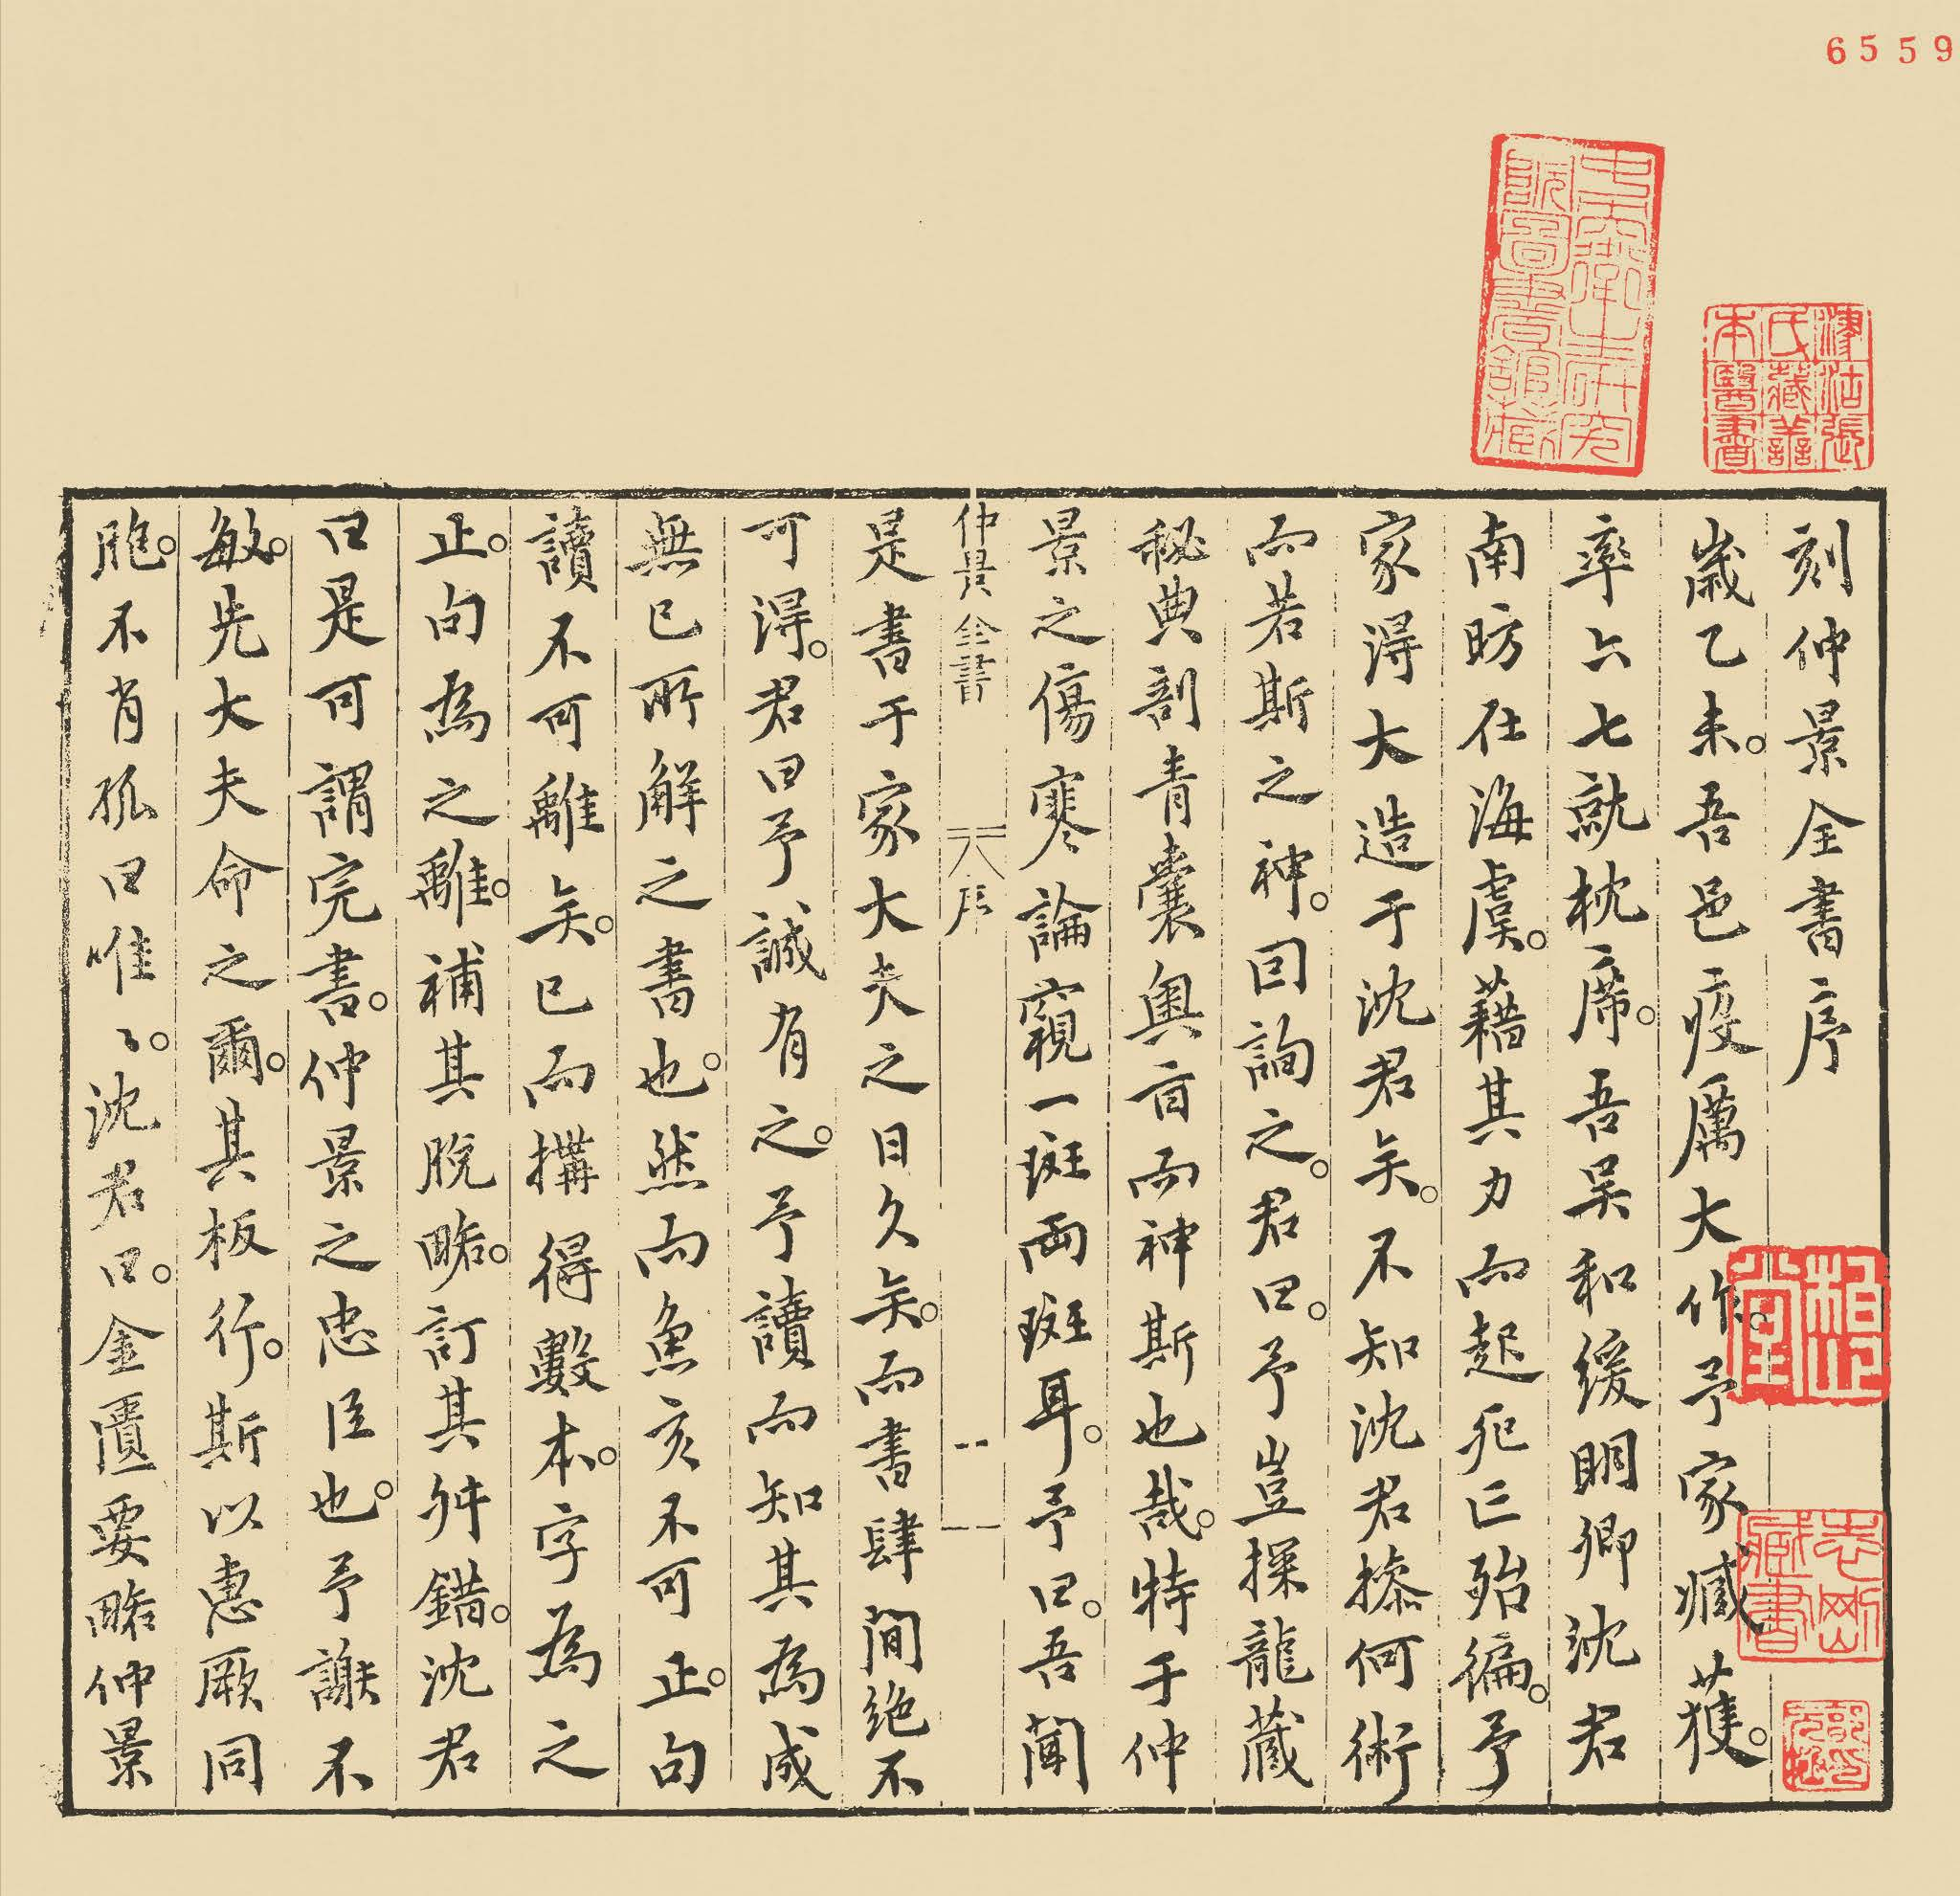 6559
中國中醫研究
院圖書館藏
津沽張
氏藏善
本醫書
刻仲景全書序
歲乙未。吾邑疫厲大作。予家臧獲。
率六七就枕席。吾吳和緩明卿沈君
南昉在海虞。藉其力而起死亡殆徧。予
家淂大造于沈君矣。不知沈君搽何術
而若斯之神。囙詢之。君曰。予豈探龍藏
秘典剖青囊奧旨而神斯也哉。特于仲
景之傷寒論窺一斑兩斑耳。予曰。吾聞
仲景全書 序 一
是書于家大夫之日久矣。而書肆間絶不
可淂。君曰予誠有之。予讀而知其為成
無已所解之書也。然而魚亥不可正。句
讀不可離矣。已而搆得數本。字為之
正。句為之離。補其脫畧。訂其舛錯。沈君
曰是可謂完書。仲景之忠臣也。予謝不
敏。先大夫命之爾。其板行。斯以惠厥同
胞。不肖孤曰唯〻。沈君曰。金匱要畧仲景
藏書